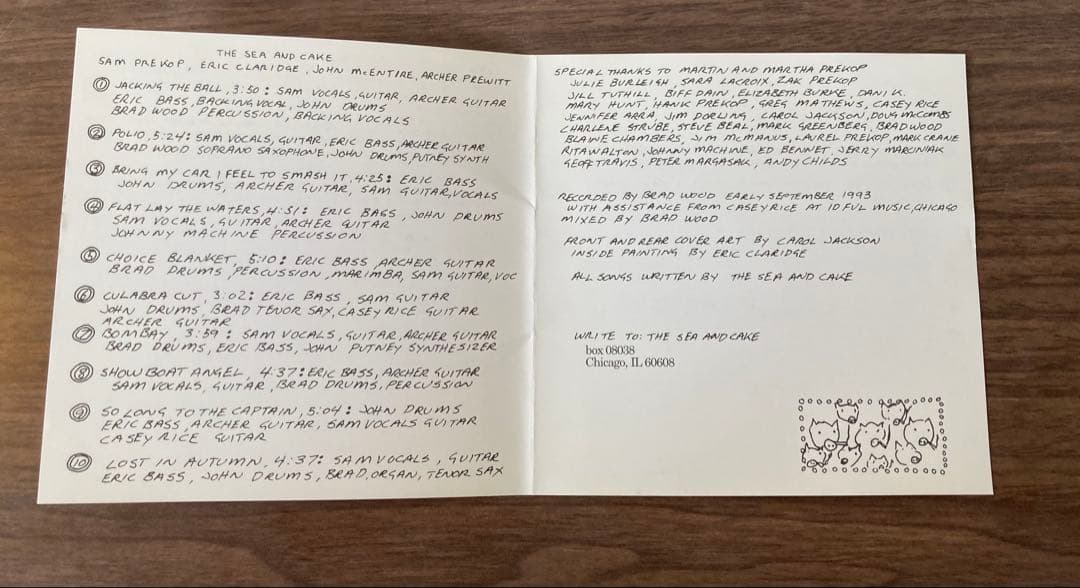 THE SEA AND CAKE
SAM PREKOP, ERIC CLARIDGE, JOHN McENTIRE, ARCHER PREWITT
① JACKING THE BALL, 3:50: SAM VOCALS, GUITAR, ARCHER GUITAR
ERIC BASS, BACKING VOCAL, JOHN DRUMS
BRAD WOOD PERCUSSION, BACKING VOCALS
② POLIO, 5:24: SAM VOCALS, GUITAR, ERIC BASS, ARCHER GUITAR
BRAD WOOD SOPRANO SAXOPHONE, JOHN DRUMS, PUTNEY SYNTH
③ BRING MY CAR I FEEL TO SMASH IT, 4:25: ERIC BASS
JOHN DRUMS, ARCHER GUITAR, SAM GUITAR, VOCALS
④ FLAT LAY THE WATERS, 4:51: ERIC BASS, JOHN DRUMS
SAM VOCALS, GUITAR, ARCHER GUITAR
JOHNNY MACHINE PERCUSSION
⑤ CHOICE BLANKET, 5:10: ERIC BASS, ARCHER GUITAR
BRAD DRUMS, PERCUSSION, MARIMBA, SAM GUITAR, VOC
⑥ CULABRA CUT, 3:02: ERIC BASS, SAM GUITAR
JOHN DRUMS, BRAD TENOR SAX, CASEY RICE GUITAR
ARCHER GUITAR
⑦ BOMBAY, 3:59: SAM VOCALS, GUITAR, ARCHER GUITAR
BRAD DRUMS, ERIC BASS, JOHN PUTNEY SYNTHESIZER
⑧ SHOW BOAT ANGEL, 4:37: ERIC BASS, ARCHER GUITAR
SAM VOCALS, GUITAR, BRAD DRUMS, PERCUSSION
⑨ SO LONG TO THE CAPTAIN, 5:04: JOHN DRUMS
ERIC BASS, ARCHER GUITAR, SAM VOCALS GUITAR
CASEY RICE GUITAR
⑩ LOST IN AUTUMN, 4:37: SAM VOCALS, GUITAR
ERIC BASS, JOHN DRUMS, BRAD, ORGAN, TENOR SAX
SPECIAL THANKS TO MARTIN AND MARTHA PREKOP
JULIE BURLEIGH, SARA LACROIX, ZAK PREKOP
JILL TUTHILL, BIFF DAIN, ELIZABETH BURKE, DANI K.
MARY HUNT, HANK PREKOP, GREG MATHEWS, CASEY RICE
JENNIFER ARRA, JIM DORLING, CAROL JACKSON, DOUG McCOMBS
CHARLENE STRUBE, STEVE BEAL, MARK GREENBERG, BRAD WOOD
BLAINE CHAMBERS, JIM McMANUS, LAUREL PREKOP, MARK CRANE
RITA WALTON, JOHNNY MACHINE, ED BENNET, JERRY MARCINIAK
GEOFF TRAVIS, PETER MARGASAK, ANDY CHILDS
RECORDED BY BRAD WOOD EARLY SEPTEMBER 1993
WITH ASSISTANCE FROM CASEY RICE AT IDFUL MUSIC, CHICAGO
MIXED BY BRAD WOOD
FRONT AND REAR COVER ART BY CAROL JACKSON
INSIDE PAINTING BY ERIC CLARIDGE
ALL SONGS WRITTEN BY THE SEA AND CAKE
WRITE TO: THE SEA AND CAKE
box 08038
Chicago, IL 60608